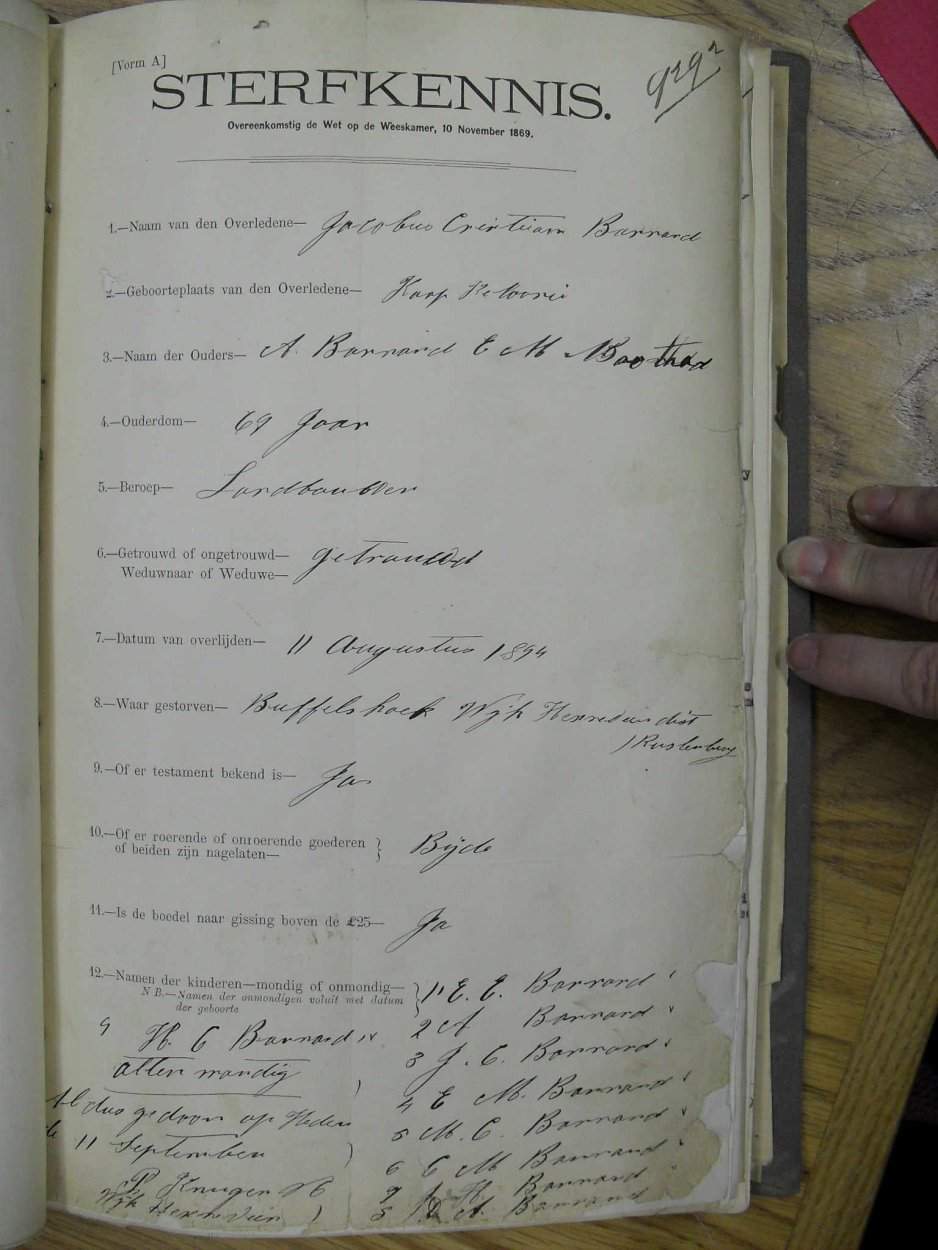 [Vorm A]
STERFKENNIS.
929
Overeenkomstig de Wet op de Weeskamer, 10 November 1869.
1.—Naam van den Overledene— Jacobus Cristiaan Barnard
2.—Geboorteplaats van den Overledene— Kaap Kolonie
3.—Naam der Ouders— A. Barnard E M
4.—Ouderdom— 69 Jaar
5.—Beroep— Landbouwer
6.—Getrouwd of ongetrouwd—
Weduwnaar of Weduwe— getrouwd
7.—Datum van overlijden— 11 Augustus 1894
8.—Waar gestorven— Buffelshoek Wyk Hexrevier dist
Rustenburg
9.—Of er testament bekend is— Ja
10.—Of er roerende of onroerende goederen
of beiden zijn nagelaten— Bijde
11.—Is de boedel naar gissing boven de £25— Ja
12.—Namen der kinderen—mondig of onmondig—
N B.—Namen der onmondigen voluit met datum
der geboorte
1 E. E. Barnard
2 A Barnard
3 J. C. Barnard
4 E M. Barnard
5 M. C. Barnard
6 C M Barnard
7 H. Barnard
8 A. Barnard
9 H. C Barnard
allen mondig
Aldus gedaan op Heden
11 September
P Kruger
Wyk Hexrevier